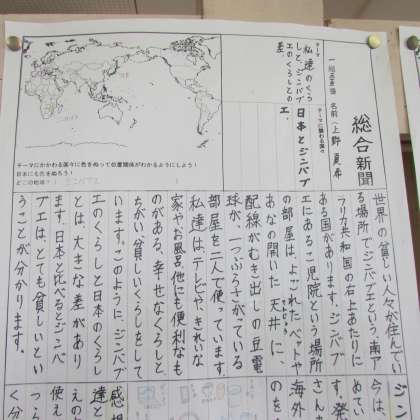 総合新聞
一組
番 名前(上野 夏希
テーマに関わる国々
日本とジンバブエ
テーマ
私達のくら
しと、ジンバブ
エのくらしとの
差。
テーマにかかわる国々に色をぬって位置関係がわかるようにしよう!
日本にも色をぬろう!
どこの地域?( ジンバブエ
世界の貧しい人々が住んでい
る場所でジンバブエという、南ア
フリカ共和国の右上あたりに
ある国があります。ジンバブ
エにあるこ児院という場所
の部屋は、よごれたベットや
あなの開いた天井に、
配線がむき出しの豆電
球が、一つぶらさがっている
部屋を二人で使っています。
私達は、テレビやきれいな
家やお風呂、他にも便利なも
のがある、幸せなくらしと
ちがい、貧しいくらしをして
います。このように、ジンバブ
エのくらしと日本のくらし
とは大きな差があり
ます。日本と比べるとジンバ
ブエはとても貧しいとい
うことが分かります。
ジン
今は、
めてい
す。発
海外
さん
感想
達と
えの
使え
つら